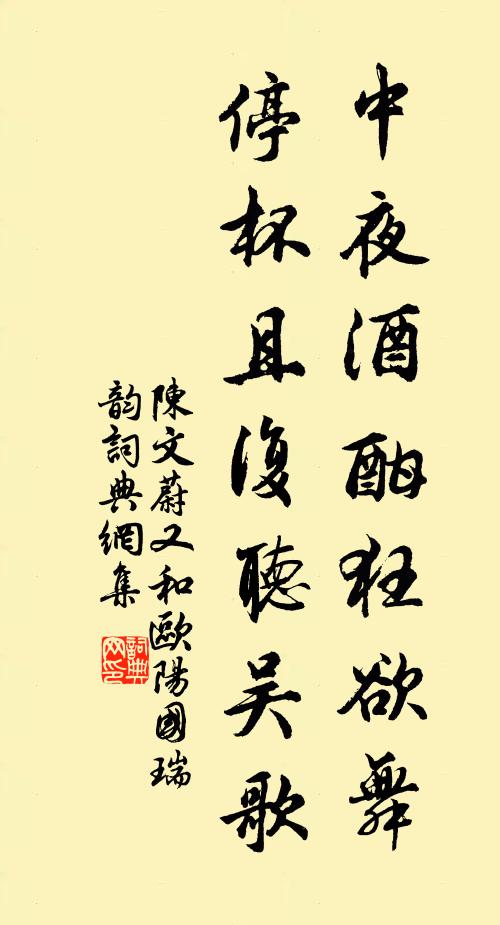 中夜酒酣狂欲舞
停杯且復聽吴歌
陳文蔚又和歐陽國瑞
韵詞典網集
詞典網印